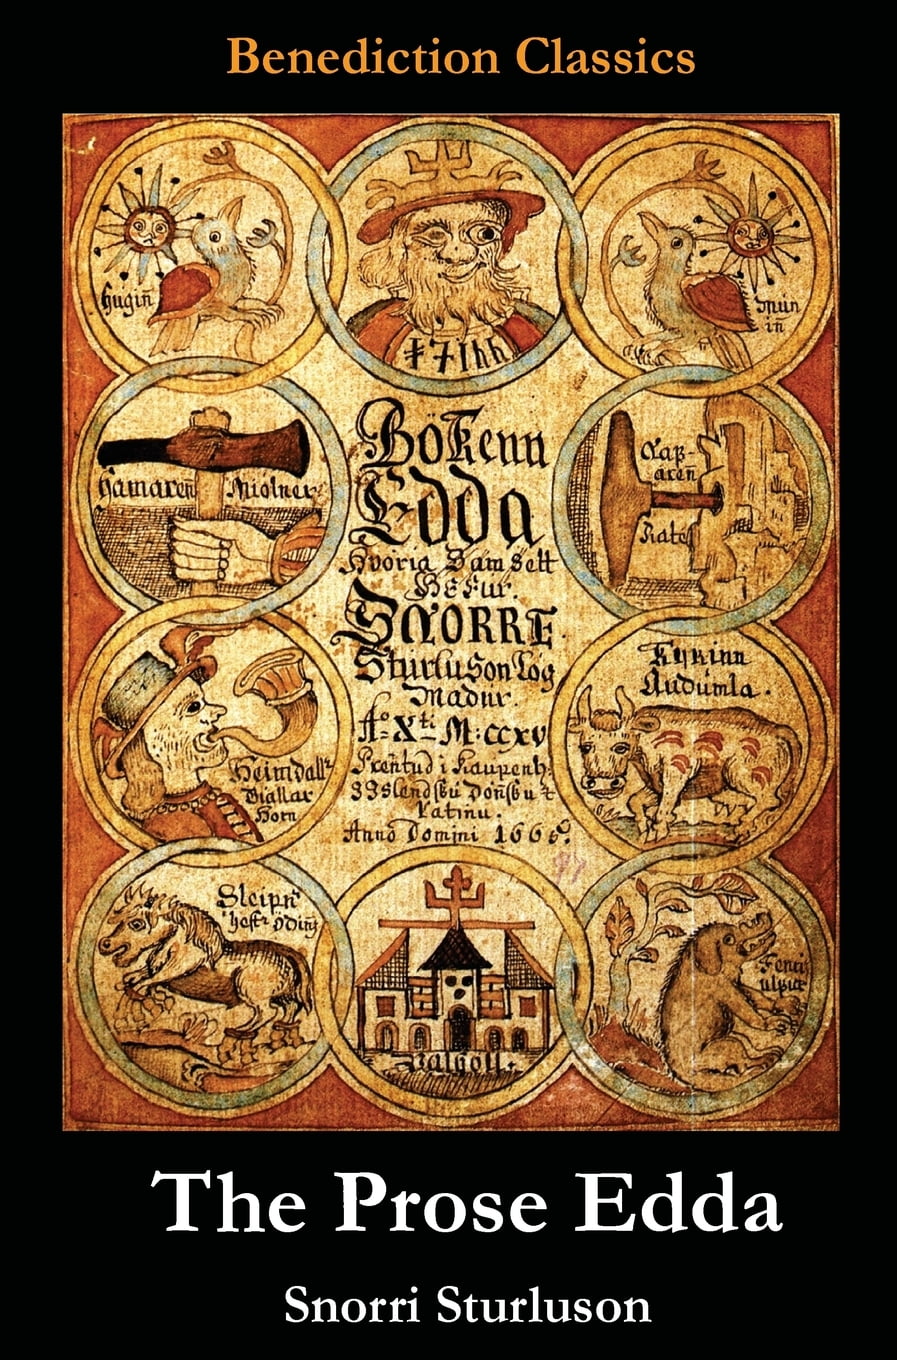 Benediction Classics
Hugin̄
Mun
in
Bökenn
Edda
Hvoria Samsett
Hefur.
SNORRE
Sturluson Log
Madur.
Aº Xti M:ccxv
Prentud i Kaupenh:
Islendsku Donsku &
Latinu.
Anno Domini 1665.
Hamaren̄ Miolner
Nab-
aren̄
Rate
Heimdallr
Giallar
Horn
Kyrinn
Audumla.
Sleipn̄
hestr Odins
Valholl.
Fenris
ulfur
The Prose Edda
Snorri Sturluson